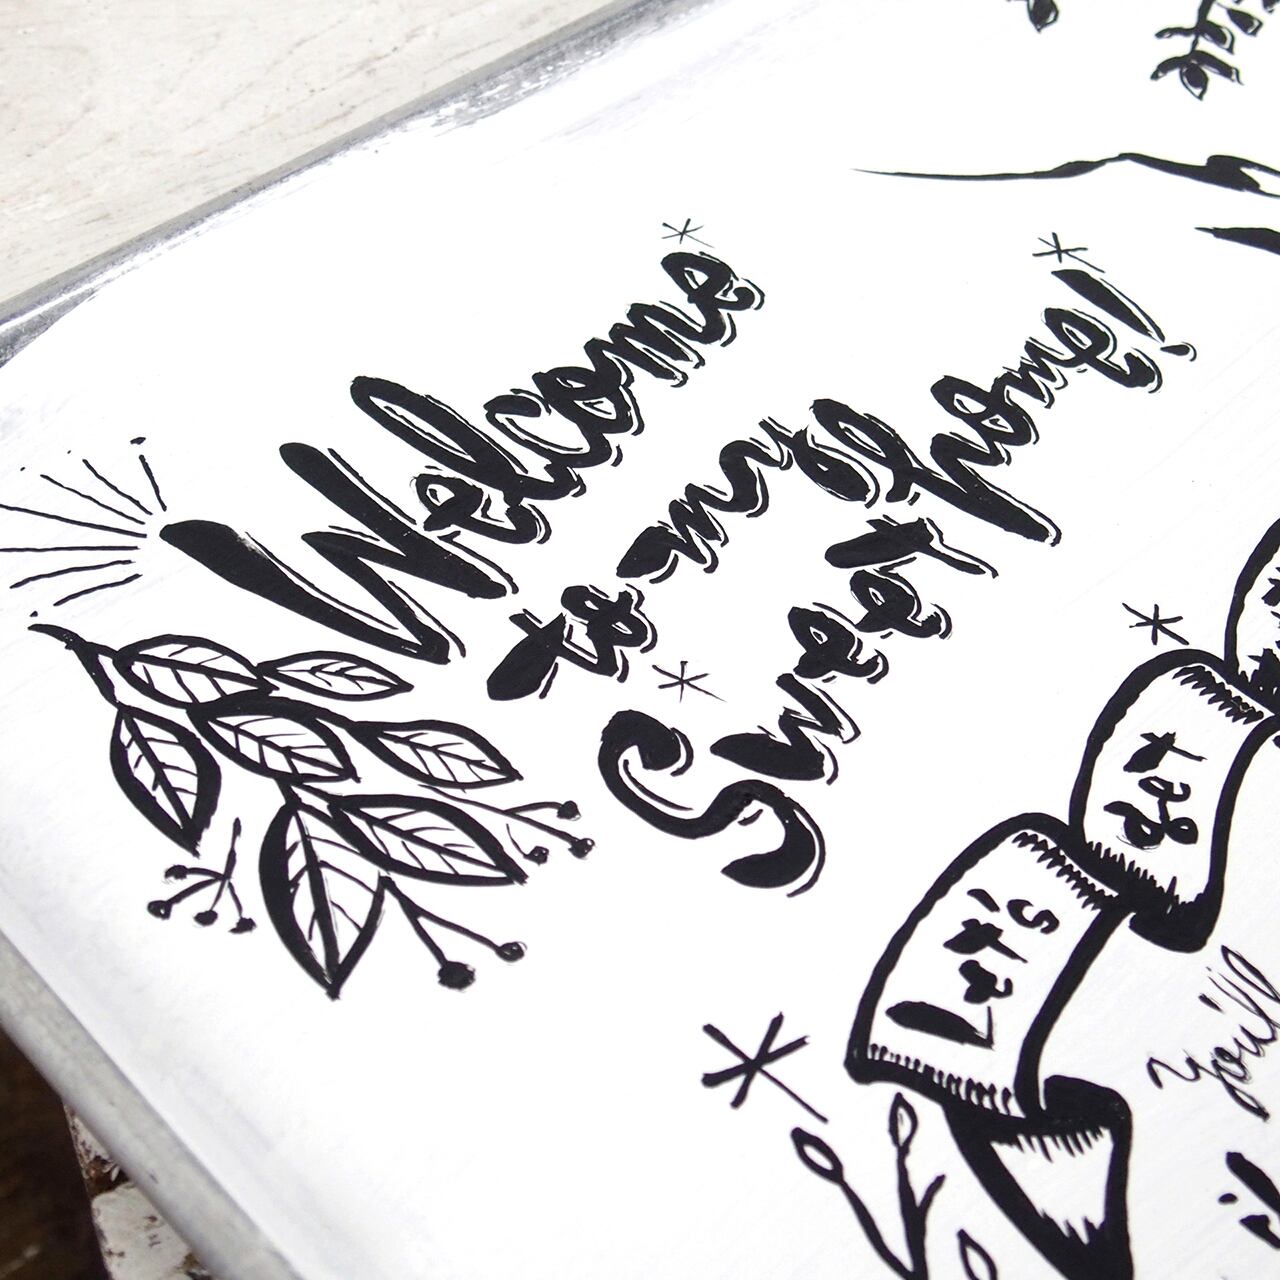 Welcome
to my
Sweet home!
Let's get
You'll